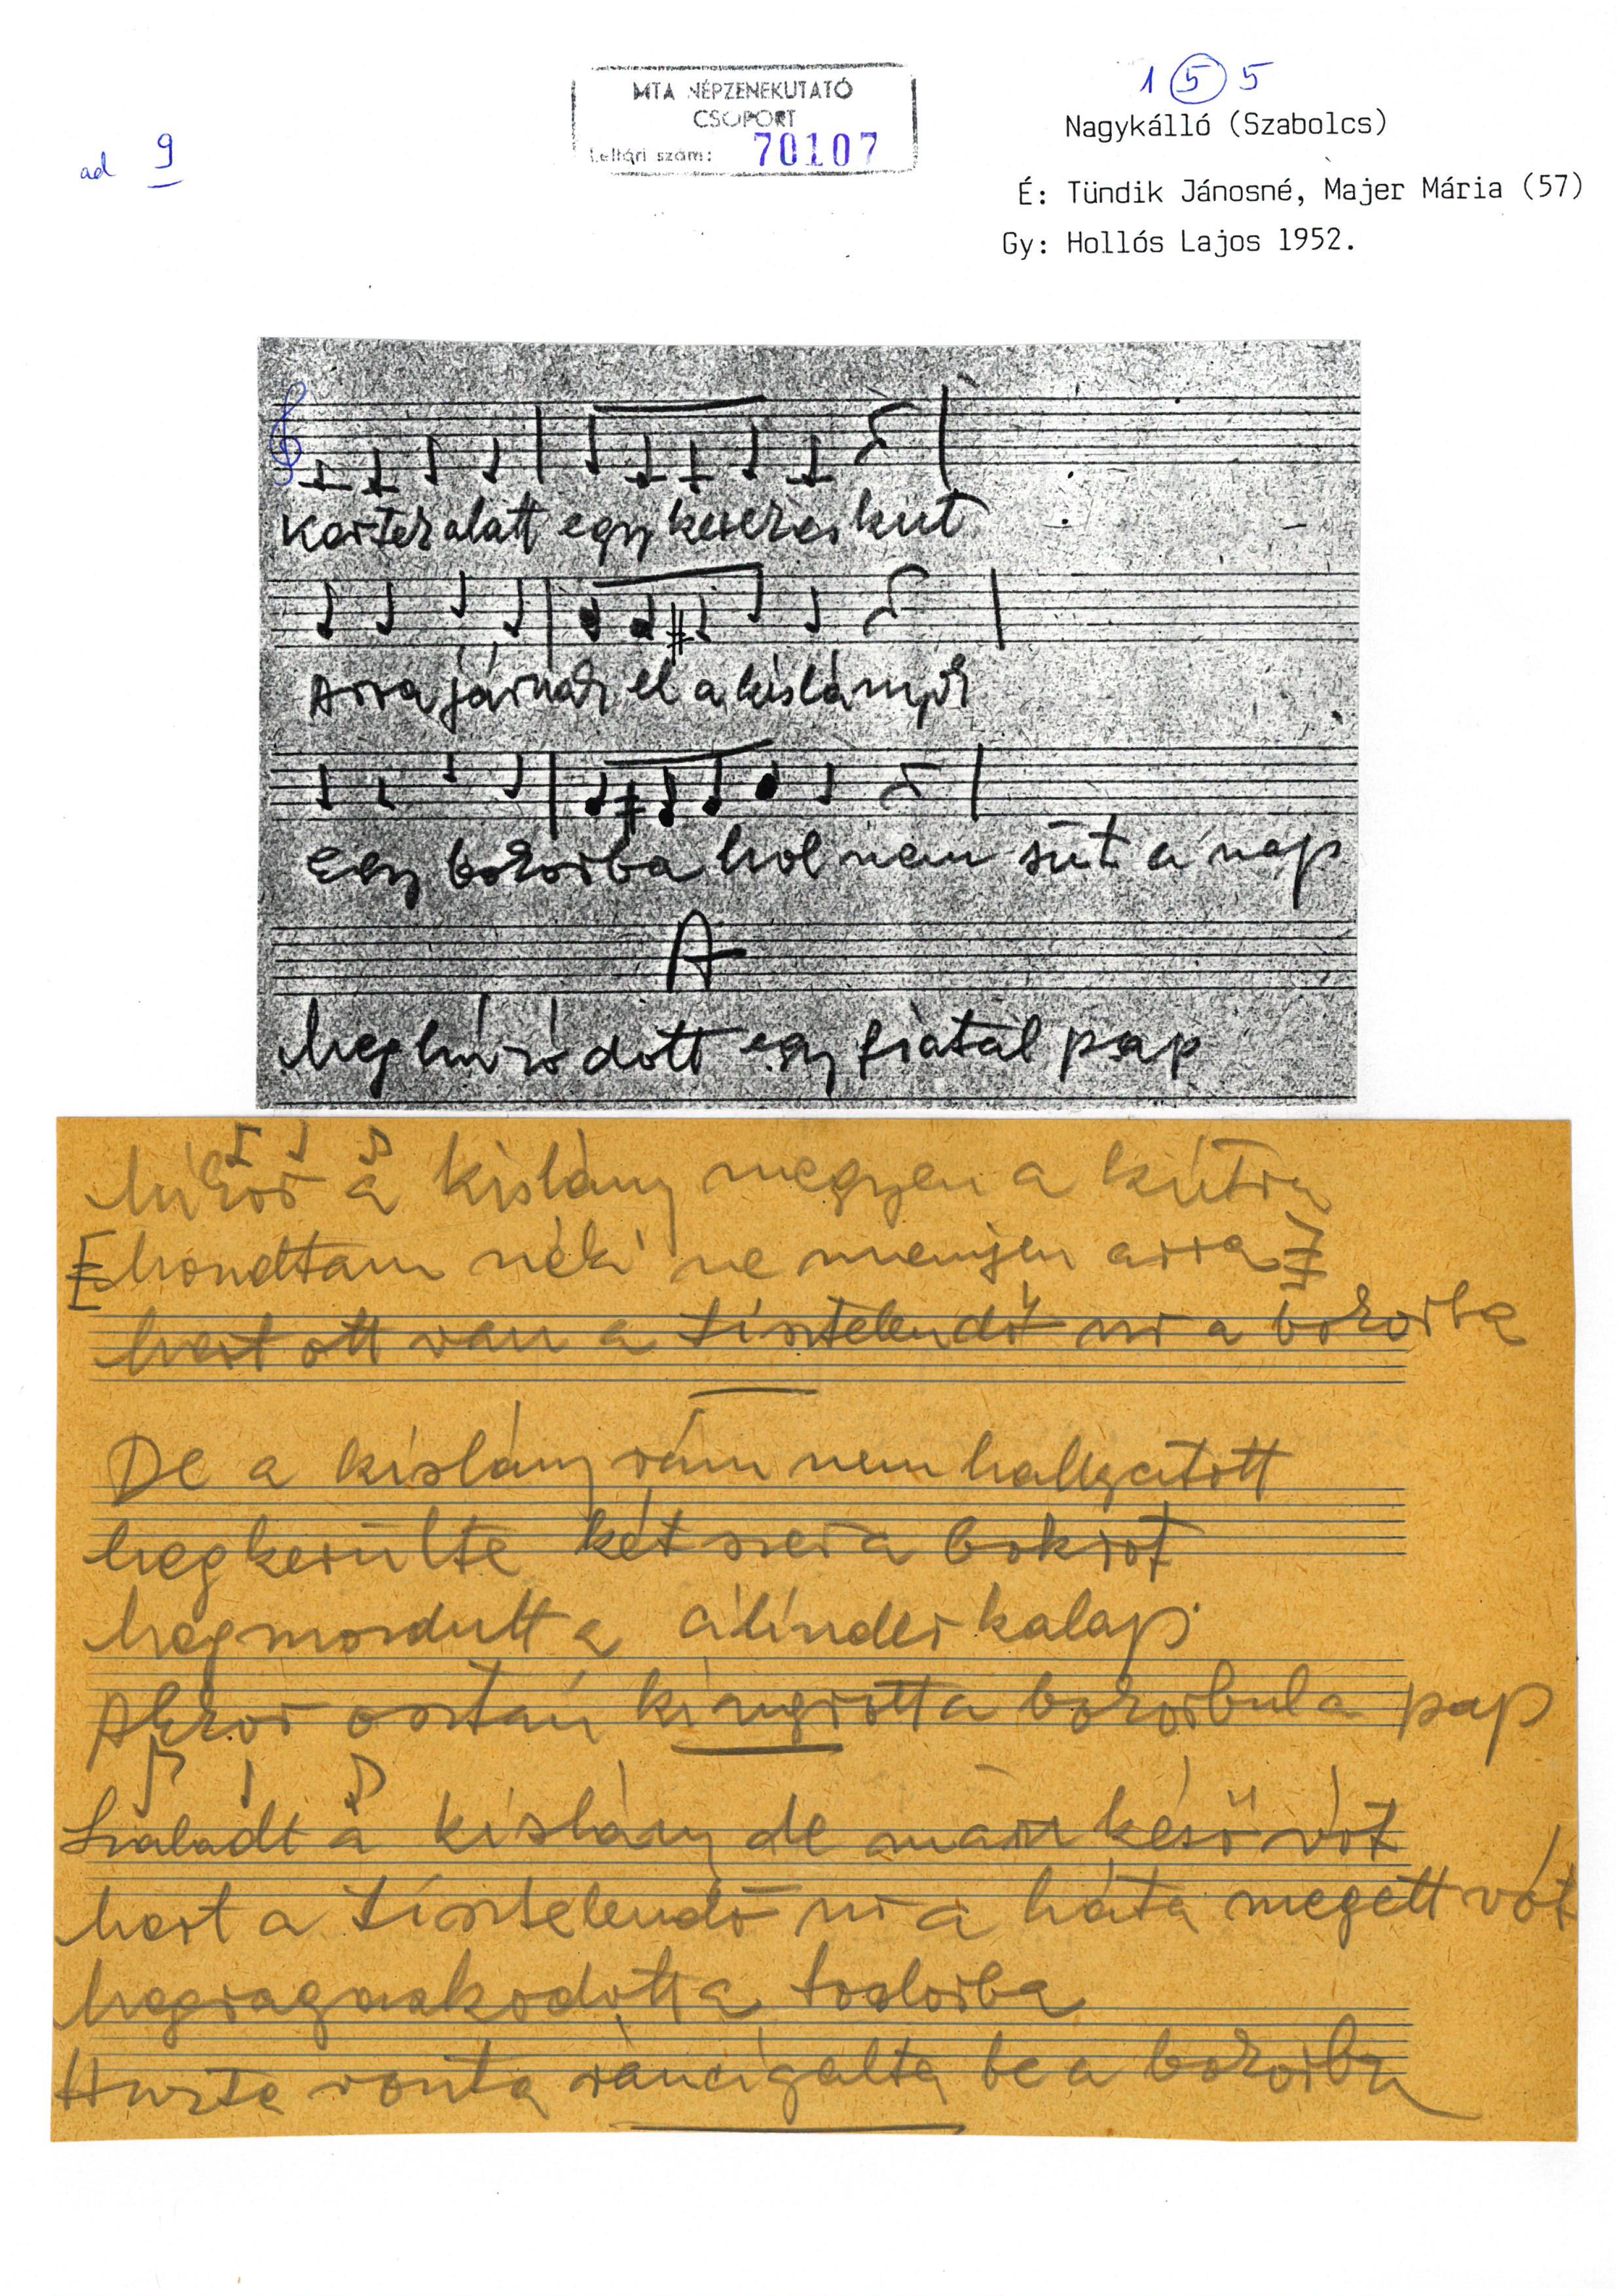 1 5 5
MTA NÉPZENEKUTATÓ
CSOPORT
Leltári szám: 70107
ad 9
Nagykálló (Szabolcs)
É: Tündik Jánosné, Majer Mária (57)
Gy: Hollós Lajos 1952.
Kertek alatt egy kerekes kut
Arra járnak el a kislányok
Egy bokorba hol nem süt a nap
A
Meghúzódott egy fiatal pap
Mikor a kislány megyen a kútra
Mondtam néki ne menjen arra
Mert ott van a tisztelendő úr a bokorba
De a kislány rám nem hallgatott
Megkerülte kétszer a bokrot
Megmordult a cilinder kalap
Akkor osztán kiugrott a bokorbul a pap
Szaladt a kislány de már késő vót
Mert a tisztelendő úr a háta megett vót
Megragaszkodott a fodorba
Huzta vonta ráncigálta be a bokorba